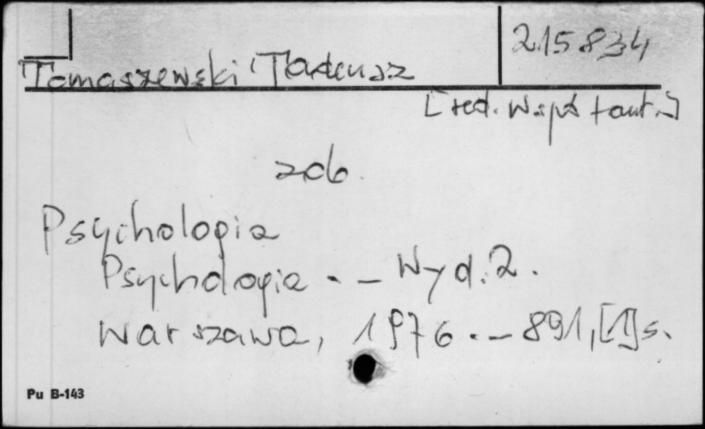 215834
Tomaszewski Tadeusz
[red. Współaut.]
zob.
Psychologia
Psychologia. – Wyd. 2.
Warszawa, 1976. – 891, [1] s.
Pu B-143